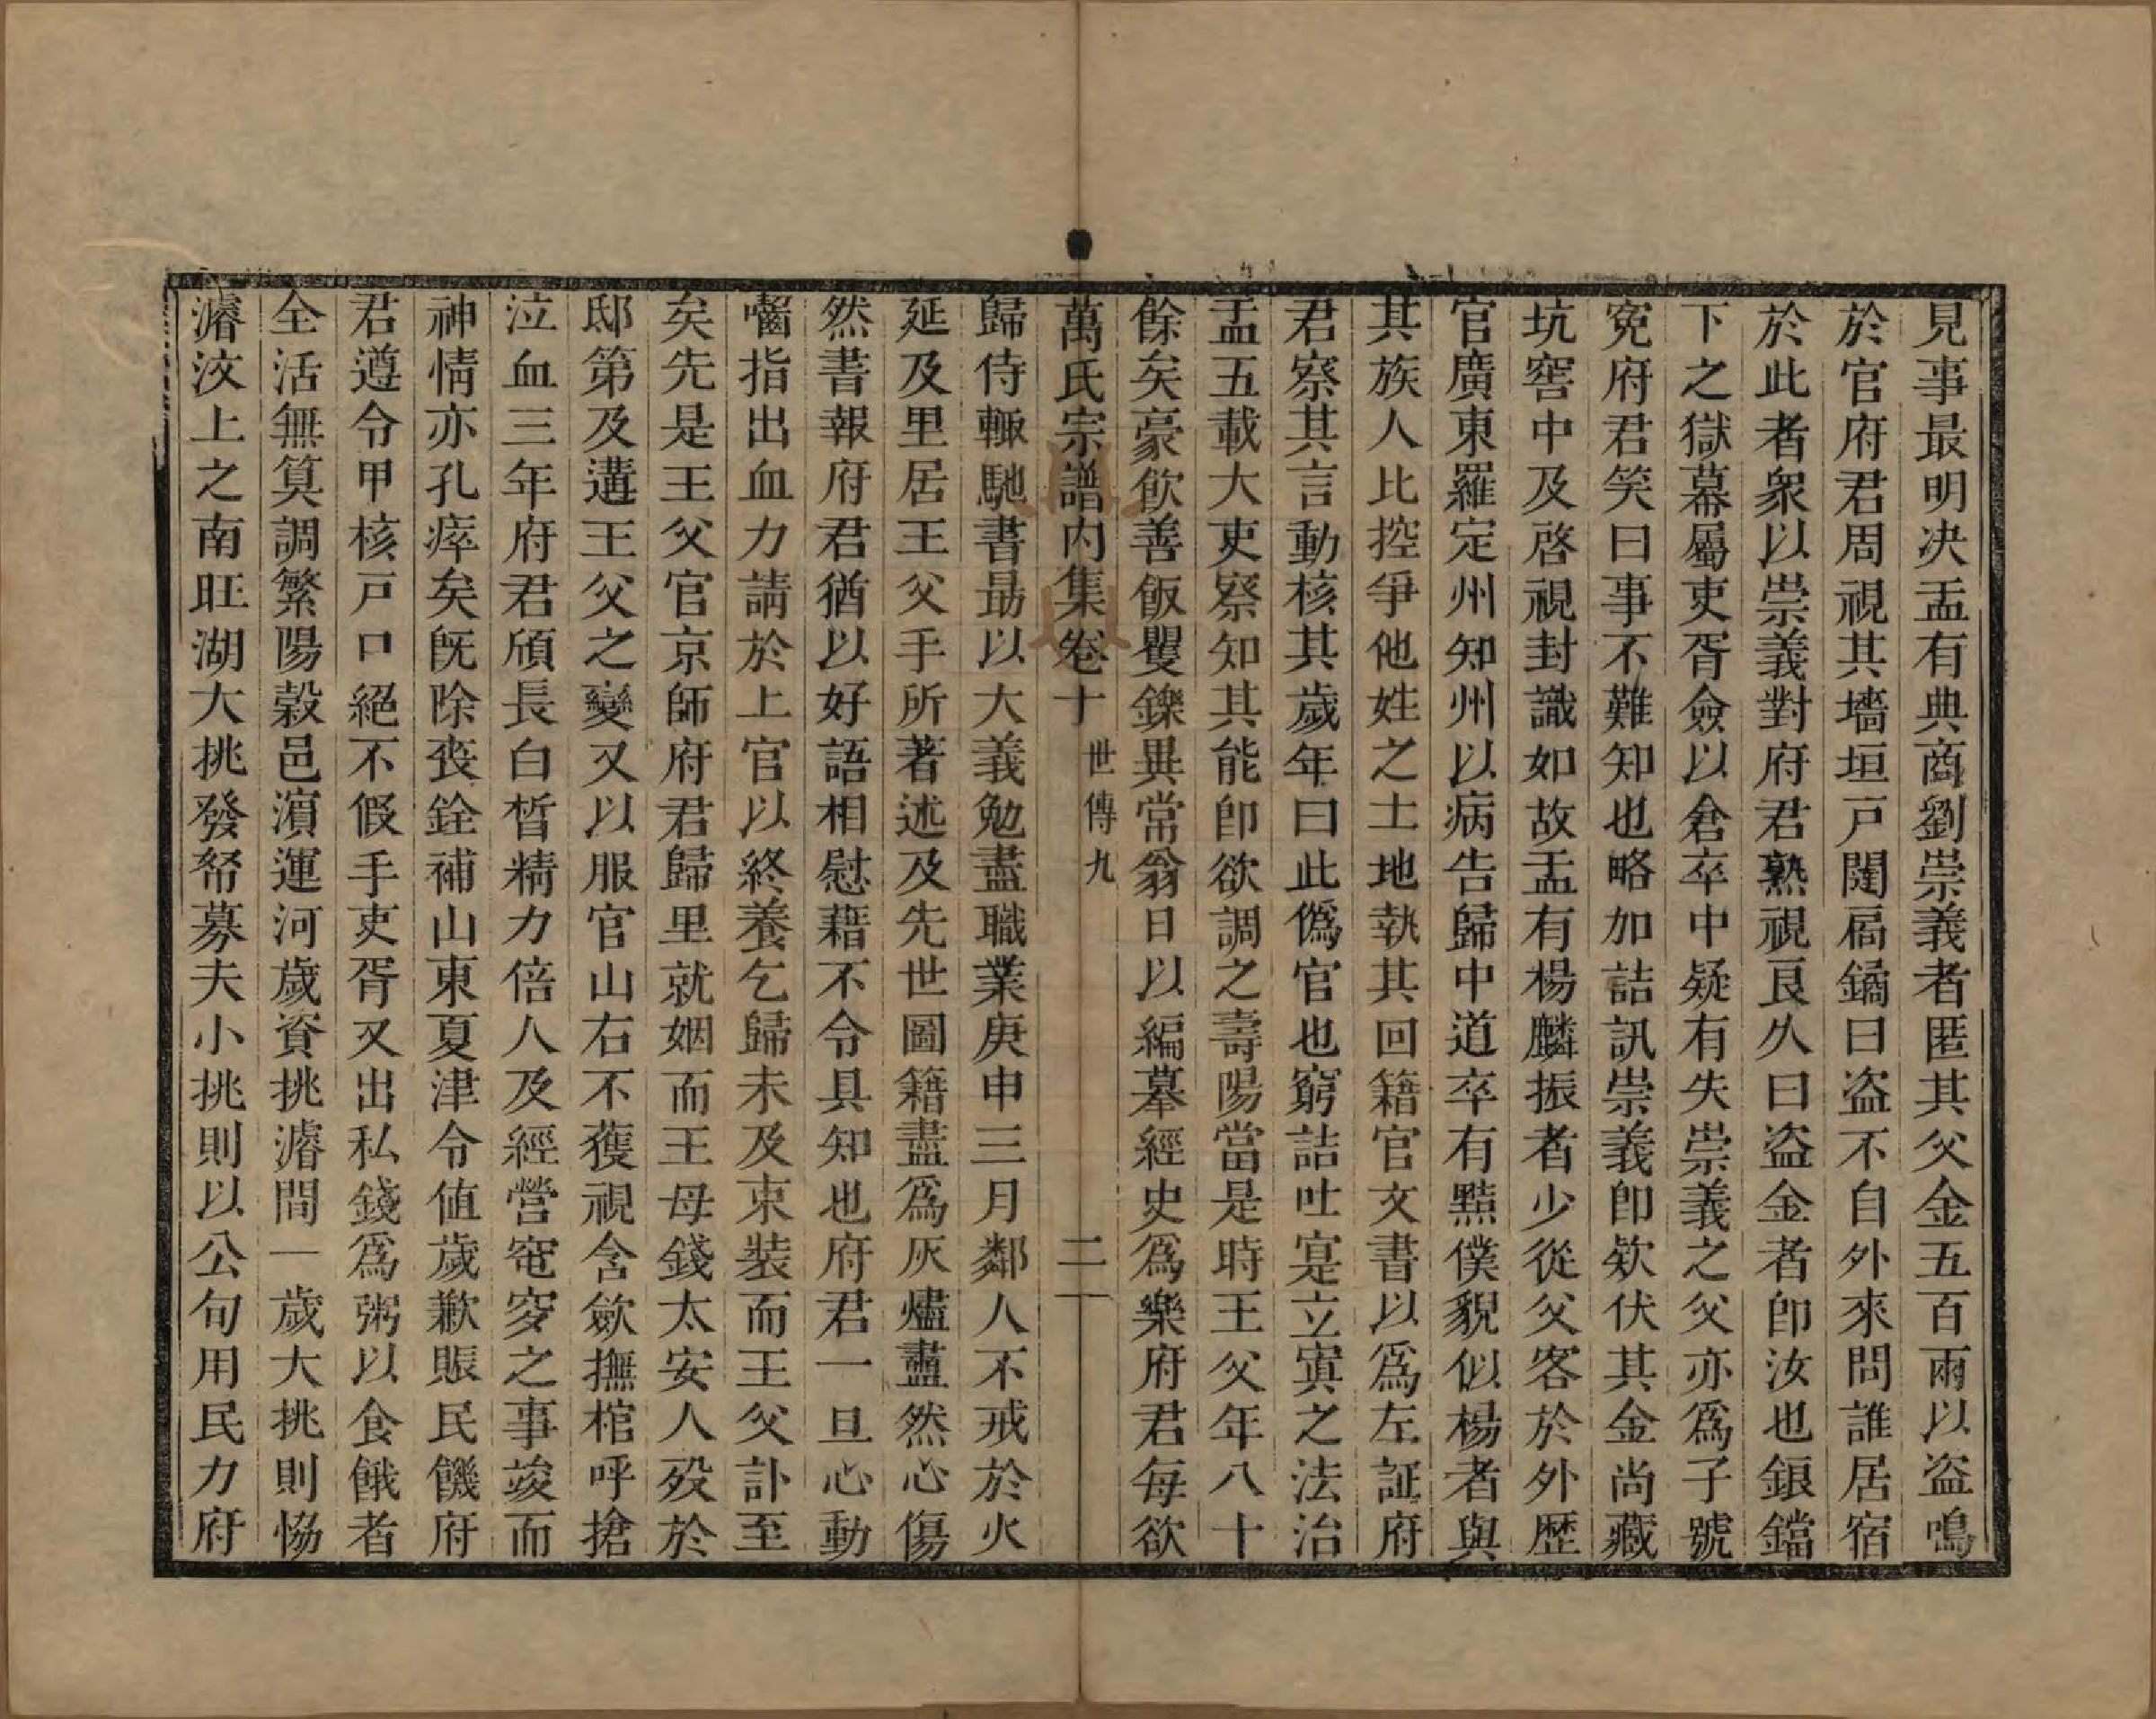 見事最明决盂有典商劉崇義者匿其父金五百兩以盜鳴
於官府君周視其墻垣戸闥扄鐍曰盜不自外來問誰居宿
於此者衆以崇義對府君熟視良久曰盜金者卽汝也鋃鐺
下之獄幕屬吏胥僉以倉卒中疑有失崇義之父亦爲子號
寃府君笑曰事不難知也略加詰訊崇義卽欵伏其金尚藏
坑窖中及啓視封識如故盂有楊麟振者少從父客於外歷
官廣東羅定州知州以病告歸中道卒有黠僕貌似楊者與
其族人比控爭他姓之土地執其回籍官文書以爲左証府
君察其言動核其歲年曰此僞官也窮詰吐寔立寘之法治
盂五載大吏察知其能卽欲調之壽陽當是時王父年八十
餘矣豪飲善飯矍鑠異常翁日以編摹經史爲樂府君每欲
萬氏宗譜内集卷十 世傳九 二
歸侍輙馳書最以大義勉盡職業庚申三月鄰人不戒於火
延及里居王父手所著述及先世圖籍盡爲灰燼衋然心傷
然書報府君猶以好語相慰藉不令具知也府君一旦心動
囓指出血力請於上官以終養乞歸未及束裝而王父訃至
矣先是王父官京師府君歸里就姻而王母錢太安人歿於
邸第及遘王父之變又以服官山右不獲視含歛撫棺呼搶
泣血三年府君頎長白晳精力倍人及經營窀穸之事竣而
神情亦孔瘁矣旣除喪銓補山東夏津令値歲歉賬民饑府
君遵令甲核戸口絕不假手吏胥又出私錢爲粥以食餓者
全活無算調繁陽穀邑濵運河歲資挑濬間一歲大挑則恊
濬汶上之南旺湖大挑發帑募夫小挑則以公旬用民力府